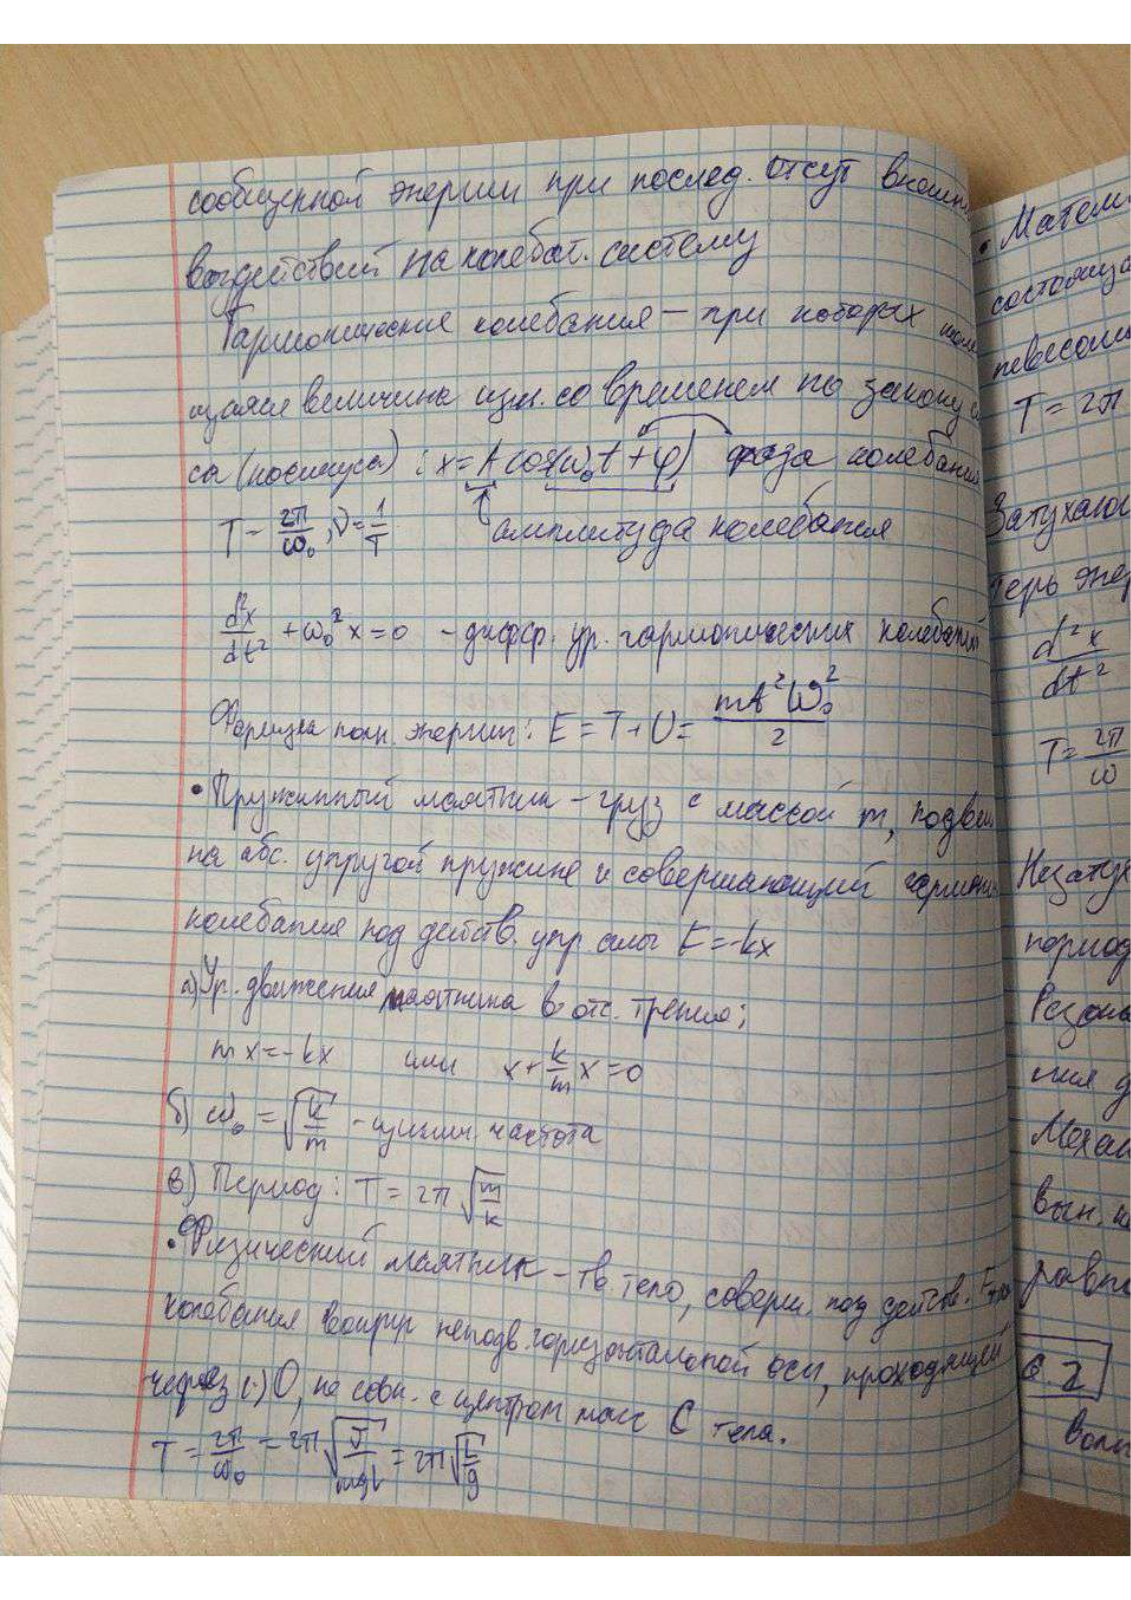 сообщенной энергии при послед. отсут внешн
воздействий на колебат. систему
Гармонические колебания – при которых коле
щаяся величина изм. со временем по закону с
са (косинуса) : x = A cos(ω₀t + φ) фаза колебания
T = 2π/ω₀ ; ν = 1/T амплитуда колебания
d²x/dt² + ω₀²x = 0 - дифф. ур. гармонических колебаний
Формула полн. энергии: E = T + U = mA²ω₀²/2
• Пружинный маятник – груз с массой m, подвеш
на абс. упругой пружине и совершающий гармонич
колебания под действ. упр силы F = -kx
а) Ур. движения маятника в отс. трения:
mx = -kx или x + k/m x = 0
б) ω₀ = √(k/m) - циклич. частота
в) Период: T = 2π √(m/k)
• Физический маятник – тв. тело, соверш. под действ. Fтяж
колебания вокруг неподв. горизонтальной оси, проходящей
через (·) O, не совп. с центром масс C тела.
T = 2π/ω₀ = 2π √(J/mgl) = 2π √(L/g)
• Матем.
состояща
невесом
T = 2π
Затухаю
терь энер
d²x/dt²
T = 2π/ω
Незатух
период
Резона
ния д
Механ
вын. к
равн
6.2
Волн